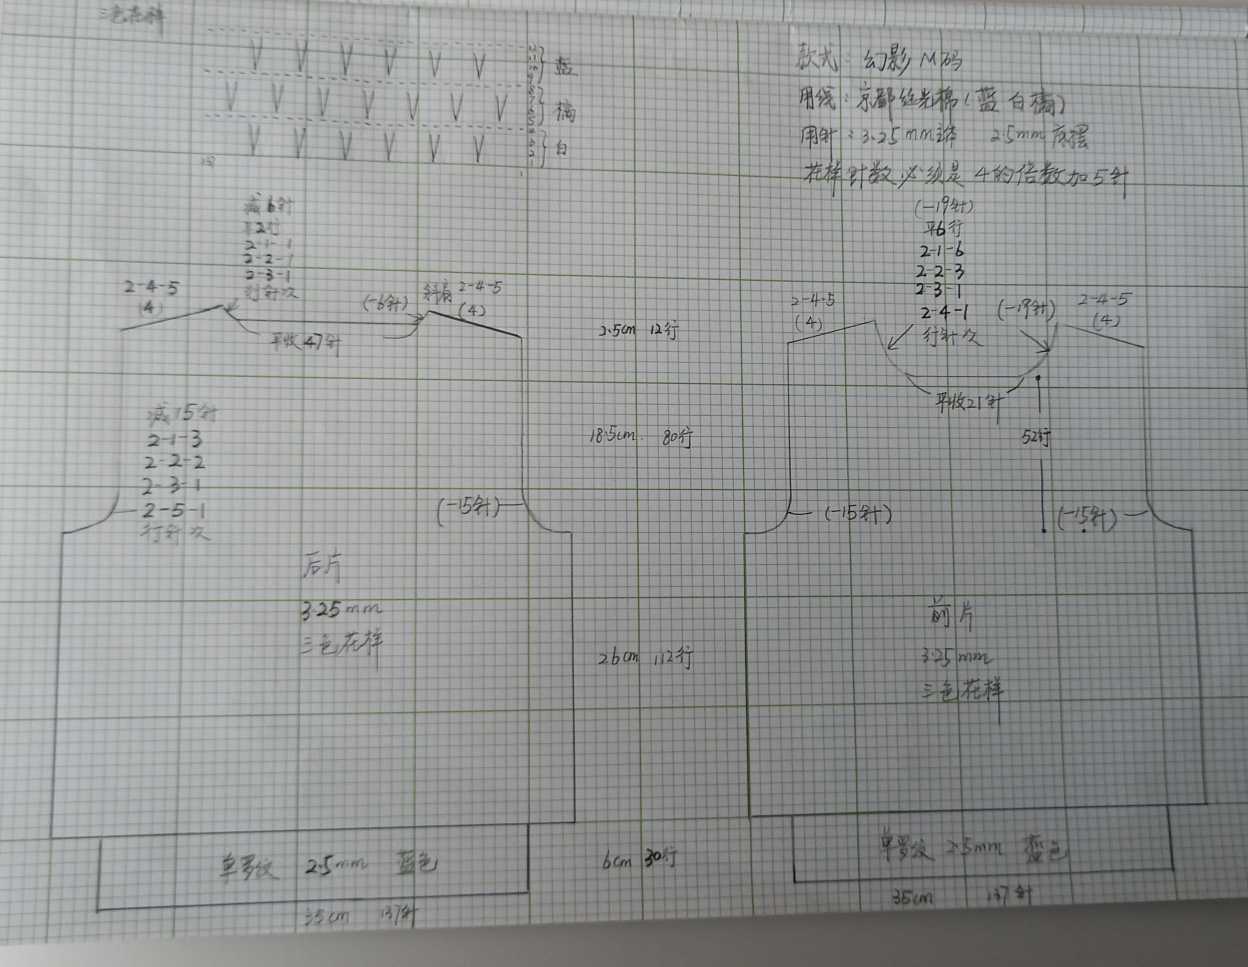 三色花样
蓝
橘
白
款式：幻影 M码
用线：京都丝光棉（蓝 白 橘）
用针：3.25mm主体 2.5mm底摆
花样针数必须是4的倍数加5针
减6针
平2行
2-1-1
2-2-1
2-3-1
行针次
2-4-5
(4)
(-6针)
斜肩 2-4-5
(4)
平收47针
(-19针)
平6行
2-1-6
2-2-3
2-3-1
2-4-1
行针次
2-4-5
(4)
(-19针)
2-4-5
(4)
平收21针
52行
2.5cm 12行
减15针
2-1-3
2-2-2
2-3-1
2-5-1
行针次
(-15针)
18.5cm 80行
(-15针)
(-15针)
后片
3.25mm
三色花样
26cm 112行
前片
3.25mm
三色花样
单罗纹 2.5mm 蓝色
6cm 30行
单罗纹 2.5mm 蓝色
35cm 137针
35cm 137针